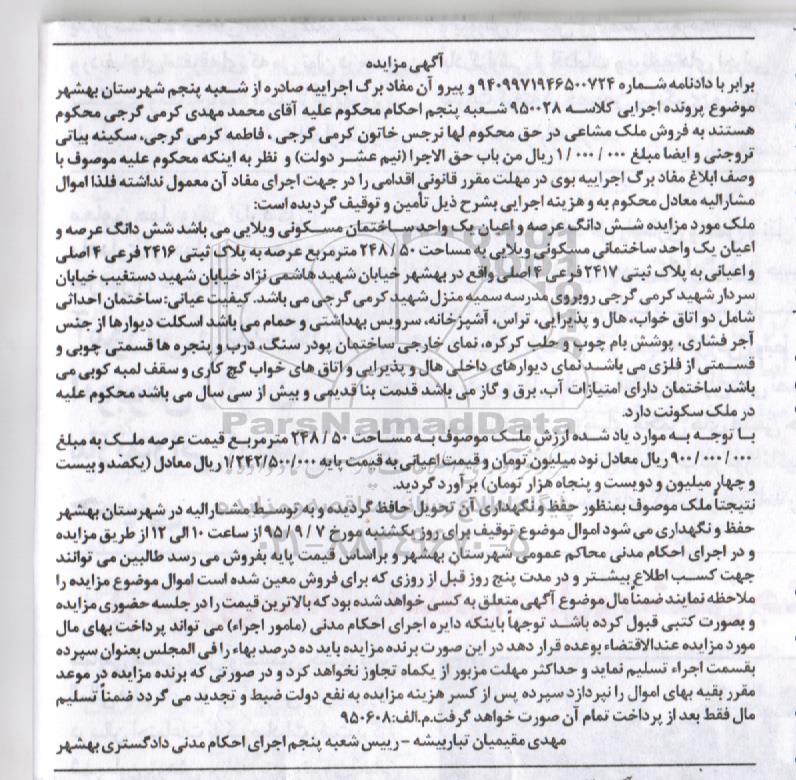 آگهی مزایده
برابر با دادنامه شماره ۹۴۰۹۹۷۱۹۴۶۵۰۰۷۳۴ و پیرو آن مفاد برگ اجراییه صادره از شعبه پنجم شهرستان بهشهر
موضوع پرونده اجرایی کلاسه ۹۵۰۰۲۸ شعبه پنجم احکام محکوم علیه آقای محمد مهدی کرمی گرجی محکوم
هستند به فروش ملک مشاعی در حق محکوم لها نرجس خاتون کرمی گرجی ، فاطمه کرمی گرجی، سکینه بیاتی
تروجنی و ایضا مبلغ ۱/۰۰۰/۰۰۰ ریال من باب حق الاجرا (نیم عشر دولت) و نظر به اینکه محکوم علیه موصوف با
وصف ابلاغ مفاد برگ اجراییه بوی در مهلت مقرر قانونی اقدامی را در جهت اجرای مفاد آن معمول نداشته فلذا اموال
مشارالیه معادل محکوم به و هزینه اجرایی بشرح ذیل تأمین و توقیف گردیده است:
ملک مورد مزایده شش دانگ عرصه و اعیان یک واحد ساختمان مسکونی ویلایی می باشد شش دانگ عرصه و
اعیان یک واحد ساختمانی مسکونی ویلایی به مساحت ۲۴۸/۵۰ مترمربع عرصه به پلاک ثبتی ۲۴۱۶ فرعی ۴ اصلی
و اعیانی به پلاک ثبتی ۲۴۱۷ فرعی ۴ اصلی واقع در بهشهر خیابان شهید هاشمی نژاد خیابان شهید دستغیب خیابان
سردار شهید کرمی گرجی روبروی مدرسه سمیه منزل شهید کرمی گرجی می باشد. کیفیت عیانی: ساختمان احداثی
شامل دو اتاق خواب، هال و پذیرایی، تراس، آشپزخانه، سرویس بهداشتی و حمام می باشد اسکلت دیوارها از جنس
آجر فشاری، پوشش بام چوب و حلب کرکره، نمای خارجی ساختمان پودر سنگ، درب و پنجره ها قسمتی چوبی و
قسمتی از فلزی می باشد نمای دیوارهای داخلی هال و پذیرایی و اتاق های خواب گچ کاری و سقف لمبه کوبی می
باشد ساختمان دارای امتیازات آب، برق و گاز می باشد قدمت بنا قدیمی و بیش از سی سال می باشد محکوم علیه
در ملک سکونت دارد.
ParsNamadData
با توجه به موارد یاد شده ارزش ملک موصوف به مساحت ۲۴۸/۵۰ مترمربع قیمت عرصه ملک به مبلغ
۹۰۰/۰۰۰/۰۰۰ ریال معادل نود میلیون تومان و قیمت اعیانی به قیمت پایه ۱/۲۴۲/۵۰۰/۰۰۰ ریال معادل (یکصد و بیست
و چهار میلیون و دویست و پنجاه هزار تومان) برآورد گردید.
نتیجتاً ملک موصوف بمنظور حفظ و نگهداری آن تحویل حافظ گردیده و به توسط مشارالیه در شهرستان بهشهر
حفظ و نگهداری می شود اموال موضوع توقیف برای روز یکشنبه مورخ ۹۵/۹/۷ از ساعت ۱۰ الی ۱۲ از طریق مزایده
۰۲۱-۸۸۳۴۹۶۷۰-۵
و در اجرای احکام مدنی محاکم عمومی شهرستان بهشهر و براساس قیمت پایه بفروش می رسد طالبین می توانند
جهت کسب اطلاع بیشتر و در مدت پنج روز قبل از روزی که برای فروش معین شده است اموال موضوع مزایده را
ملاحظه نمایند ضمناً مال موضوع آگهی متعلق به کسی خواهد شد بود که بالاترین قیمت را در جلسه حضوری مزایده
و بصورت کتبی قبول کرده باشد توجهاً باینکه دایره اجرای احکام مدنی (مامور اجراء) می تواند پرداخت بهای مال
مورد مزایده عندالاقتضاء بوعده قرار دهد در این صورت برنده مزایده باید ده درصد بهاء را فی المجلس بعنوان سپرده
بقسمت اجراء تسلیم نماید و حداکثر مهلت مزبور از یکماه تجاوز نخواهد کرد و در صورتی که برنده مزایده در موعد
مقرر بقیه بهای اموال را نپردازد سپرده پس از کسر هزینه مزایده به نفع دولت ضبط و تجدید می گردد ضمناً تسلیم
مال فقط بعد از پرداخت تمام آن صورت خواهد گرفت.م.الف:۹۵۰۶۰۸
مهدی مقیمیان تبارپیشه - رییس شعبه پنجم اجرای احکام مدنی دادگستری بهشهر